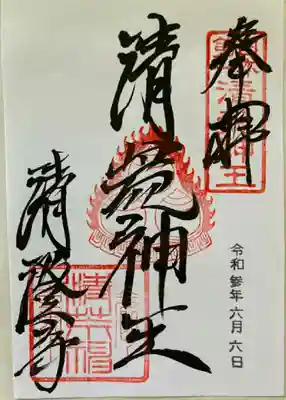 奉拝
令和参年六月六日
清荒神王
清澄寺